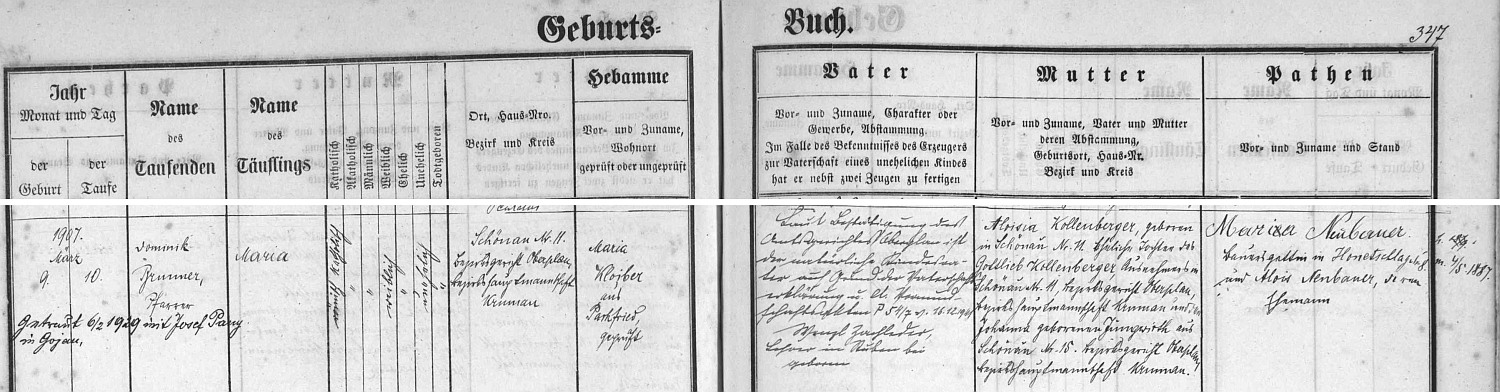 Geburts=
Buch.
347
Jahr
Monat und Tag
der
Geburt
der
Taufe
Name
des
Taufenden
Name
des
Täuflings
Katholisch
Akatholisch
Männlich
Weiblich
Ehelich
Unehelich
Todtgeboren
Ort, Haus-Nro.
Bezirk und Kreis
Hebamme
Vor- und Zuname,
Wohnort
geprüft oder ungeprüft
Vater
Vor- und Zuname, Charakter oder
Gewerbe, Abstammung.
Im Falle des Bekenntnisses des Erzeugers
zur Vaterschaft eines unehelichen Kindes
hat er nebst zwei Zeugen zu fertigen
Mutter
Vor- und Zuname, Vater und Mutter
deren Abstammung,
Geburtsort, Haus-Nr.
Bezirk und Kreis
Pathen
Vor- und Zuname und Stand
1907.
März
9. 10.
Dominik
Brunner,
Pfarrer
Getraut 6/2 1929 mit Josef
in Gojau.
Maria
Schönau Nr. 11.
Bezirksgericht Oberplan,
Bezirkshauptmannschaft
Krumau
Maria
Wojber
aus
Parkfried
geprüft
Laut Bestätigung des
Amtsgerichtes Oberplan ist
der natürliche Kindesva-
ter auf Grund der Vaterschafts-
erklärung u. lt. Vormund-
schaftsakten P 51/7 v.
Wenzl Zachleder,
Lehrer in Stuben bei
geboren
Aloisia Kollenberger, geboren
in Schönau Nr. 11, eheliche Tochter des
Gottlieb Kollenberger Ausnehmers in
Schönau Nr. 11, Bezirksgericht Oberplan,
Bezirkshauptmannschaft Krumau und der
Johanna geborenen Jungwirth aus
Schönau Nr. 15. Bezirksgericht Oberplan,
Bezirkshauptmannschaft Krumau.
Maria Neubauer
Bauersgattin in Honetschlag
und Alois Neubauer, deren
Ehemann
4/5 1887.